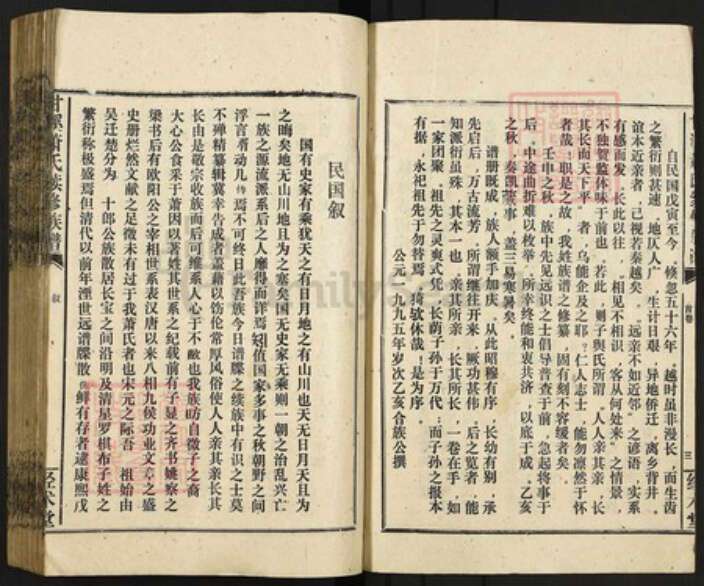 自民国戊寅至今，倏忽五十六年，越时虽非漫长，而生齿
之繁衍则甚速，地仄人广，生计日艰，异地侨迁，离乡背井。
谊本近亲者，己视若秦越矣。“远亲不如近邻”之谚语，实系
有感而发，长此以往，“相见不相识，客从何处来”之情景，
不独贺监体味于前也。若此，则子舆氏所谓“人人亲其亲，长
其长而天下平”者，乌能企及之耶？仁人志士，能勿凛然于怀
者哉！职是之故，我姓族谱之修纂，固有刻不容缓者矣。
壬申之秋，族中先见远识之士倡导普查于前，急起将事于
后。中途曲折难以枚举，所幸终能和衷共济，以底于成。乙亥
之秋，奏凯蒇事，盖三易寒暑矣。
谱册既成，族人额手加庆。从此昭穆有序，长幼有别，承
先启后，万古流芳。所谓继往开来，厥功甚伟。后之览者，能
知派衍虽殊，其本一也。亲其所亲，长其所长，一卷在手，如
一家团聚。祖先之灵爽式凭，长荫子孙于万代；而子孙之报本
有据，永祀祖先于勿替焉。猗欤休哉！是为序。
公元一九九五年岁次乙亥合族公撰
三
民国叙
国有史家有乘犹天之有日月地之有山川也天无日月天且为
之晦矣地无山川地且为之塞矣国无史家无乘则一朝之治乱兴亡
一族之源流派系后之人靡得而详焉矧值国家多事之秋朝野之间
浮言胥动几焉不可终日此吾族今日谱牒之续族中有识之士莫
不殚精纂辑冀幸告成者盖藉以饬伦常厚风俗使人人亲其亲长其
长由是敬宗收族而后可维系人心于不敝也我族昉自微子之裔
大心公食采于萧因以著姓其世系之纪载前有子显之齐书姚察之
梁书后有欧阳公之宰相世系表汉唐以来八相九侯功业文章之盛
史册烂然文献之足徵未有过于我萧氏者也宋元之际吾 祖始由
吴迁楚分为 十郎公族散居长宝之间沿明及清星罗棋布子姓之
繁衍称极盛焉但清代以前年湮世远谱牒散佚鲜有存者逮康熙戊
萧氏族修族谱
叙